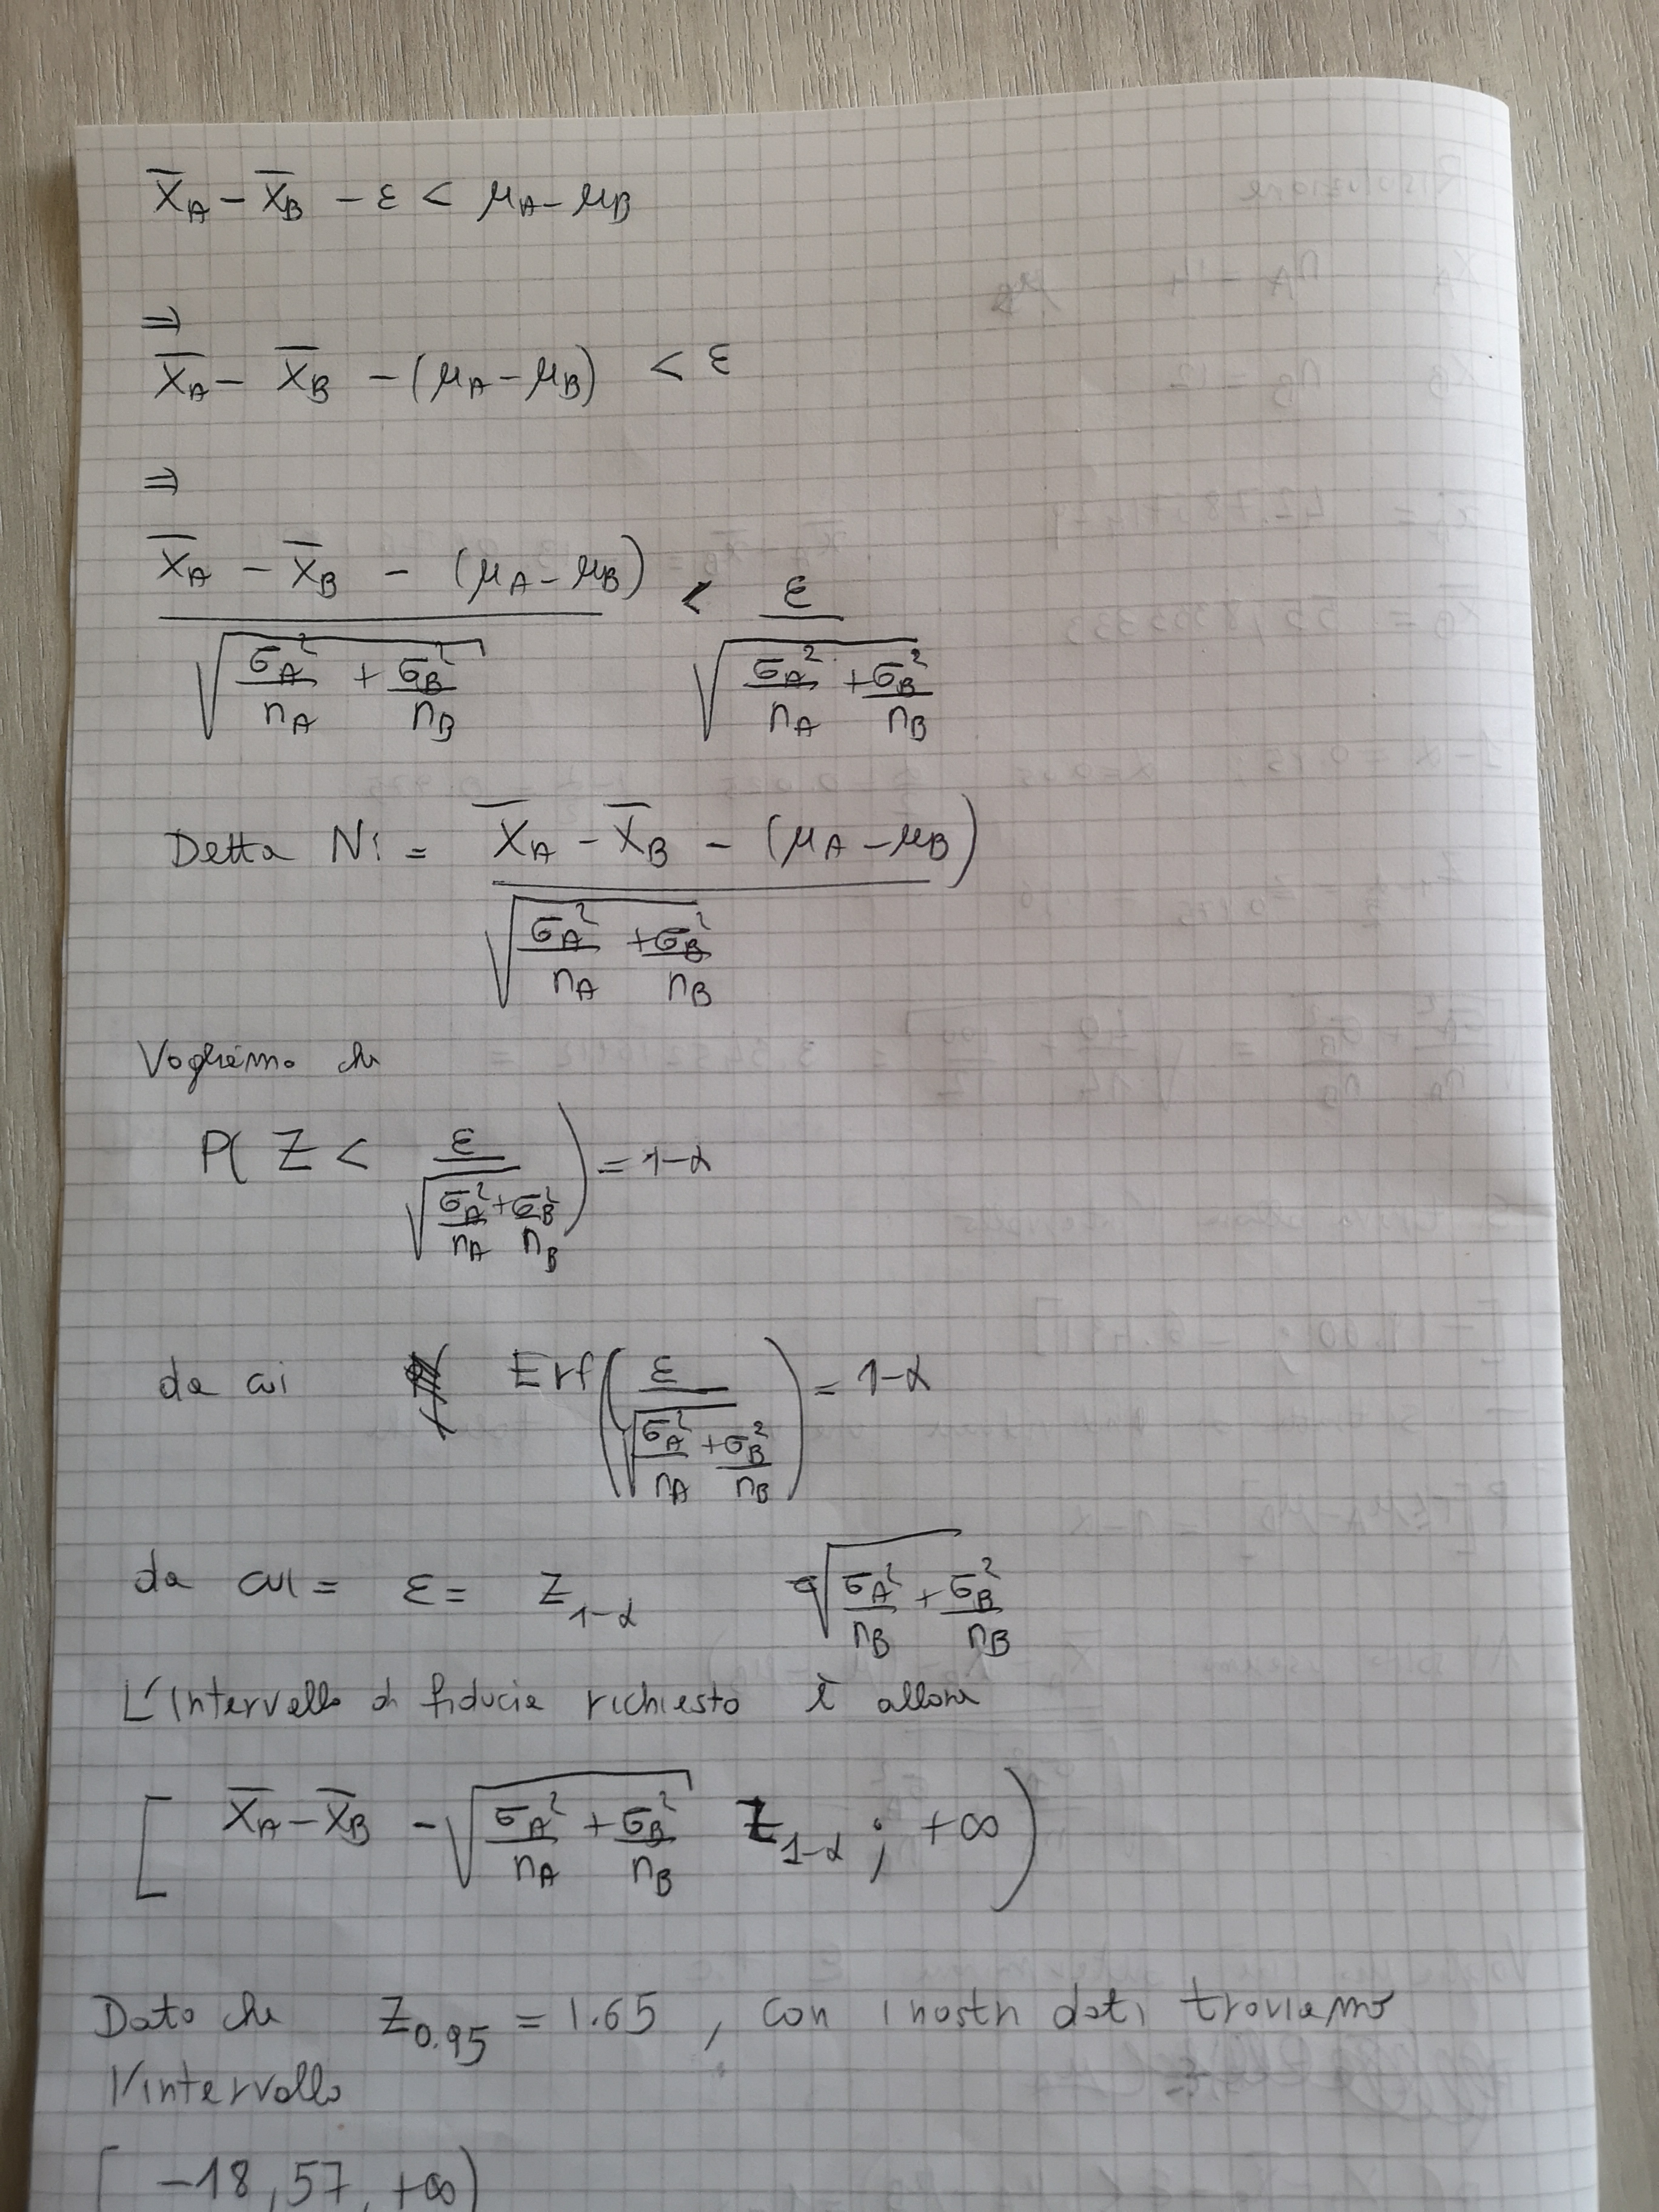 X̄_A − X̄_B − ε < μ_A − μ_B
⇒
X̄_A − X̄_B − (μ_A − μ_B) < ε
⇒
(X̄_A − X̄_B − (μ_A − μ_B)) / √(σ_A²/n_A + σ_B²/n_B) < ε / √(σ_A²/n_A + σ_B²/n_B)
Detta Ni = (X̄_A − X̄_B − (μ_A − μ_B)) / √(σ_A²/n_A + σ_B²/n_B)
Vogliamo che
P( Z < ε / √(σ_A²/n_A + σ_B²/n_B) ) = 1−α
da cui Erf( ε / √(σ_A²/n_A + σ_B²/n_B) ) = 1−α
da cui = ε = Z_{1−α} √(σ_A²/n_B + σ_B²/n_B)
L'intervallo di fiducia richiesto è allora
[ X̄_A − X̄_B − √(σ_A²/n_A + σ_B²/n_B) Z_{1−α} ; +∞ )
Dato che Z_{0.95} = 1.65 , con i nostri dati troviamo
l'intervallo
[ −18,57, +∞)